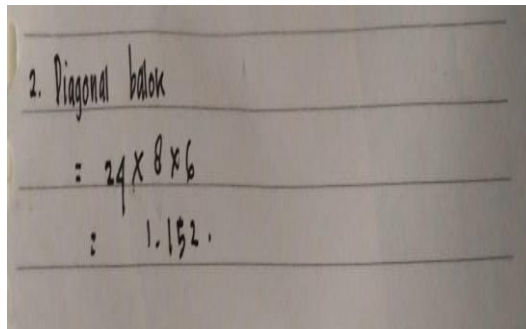 2. Diagonal balok
= 24 x 8 x 6
= 1.152.